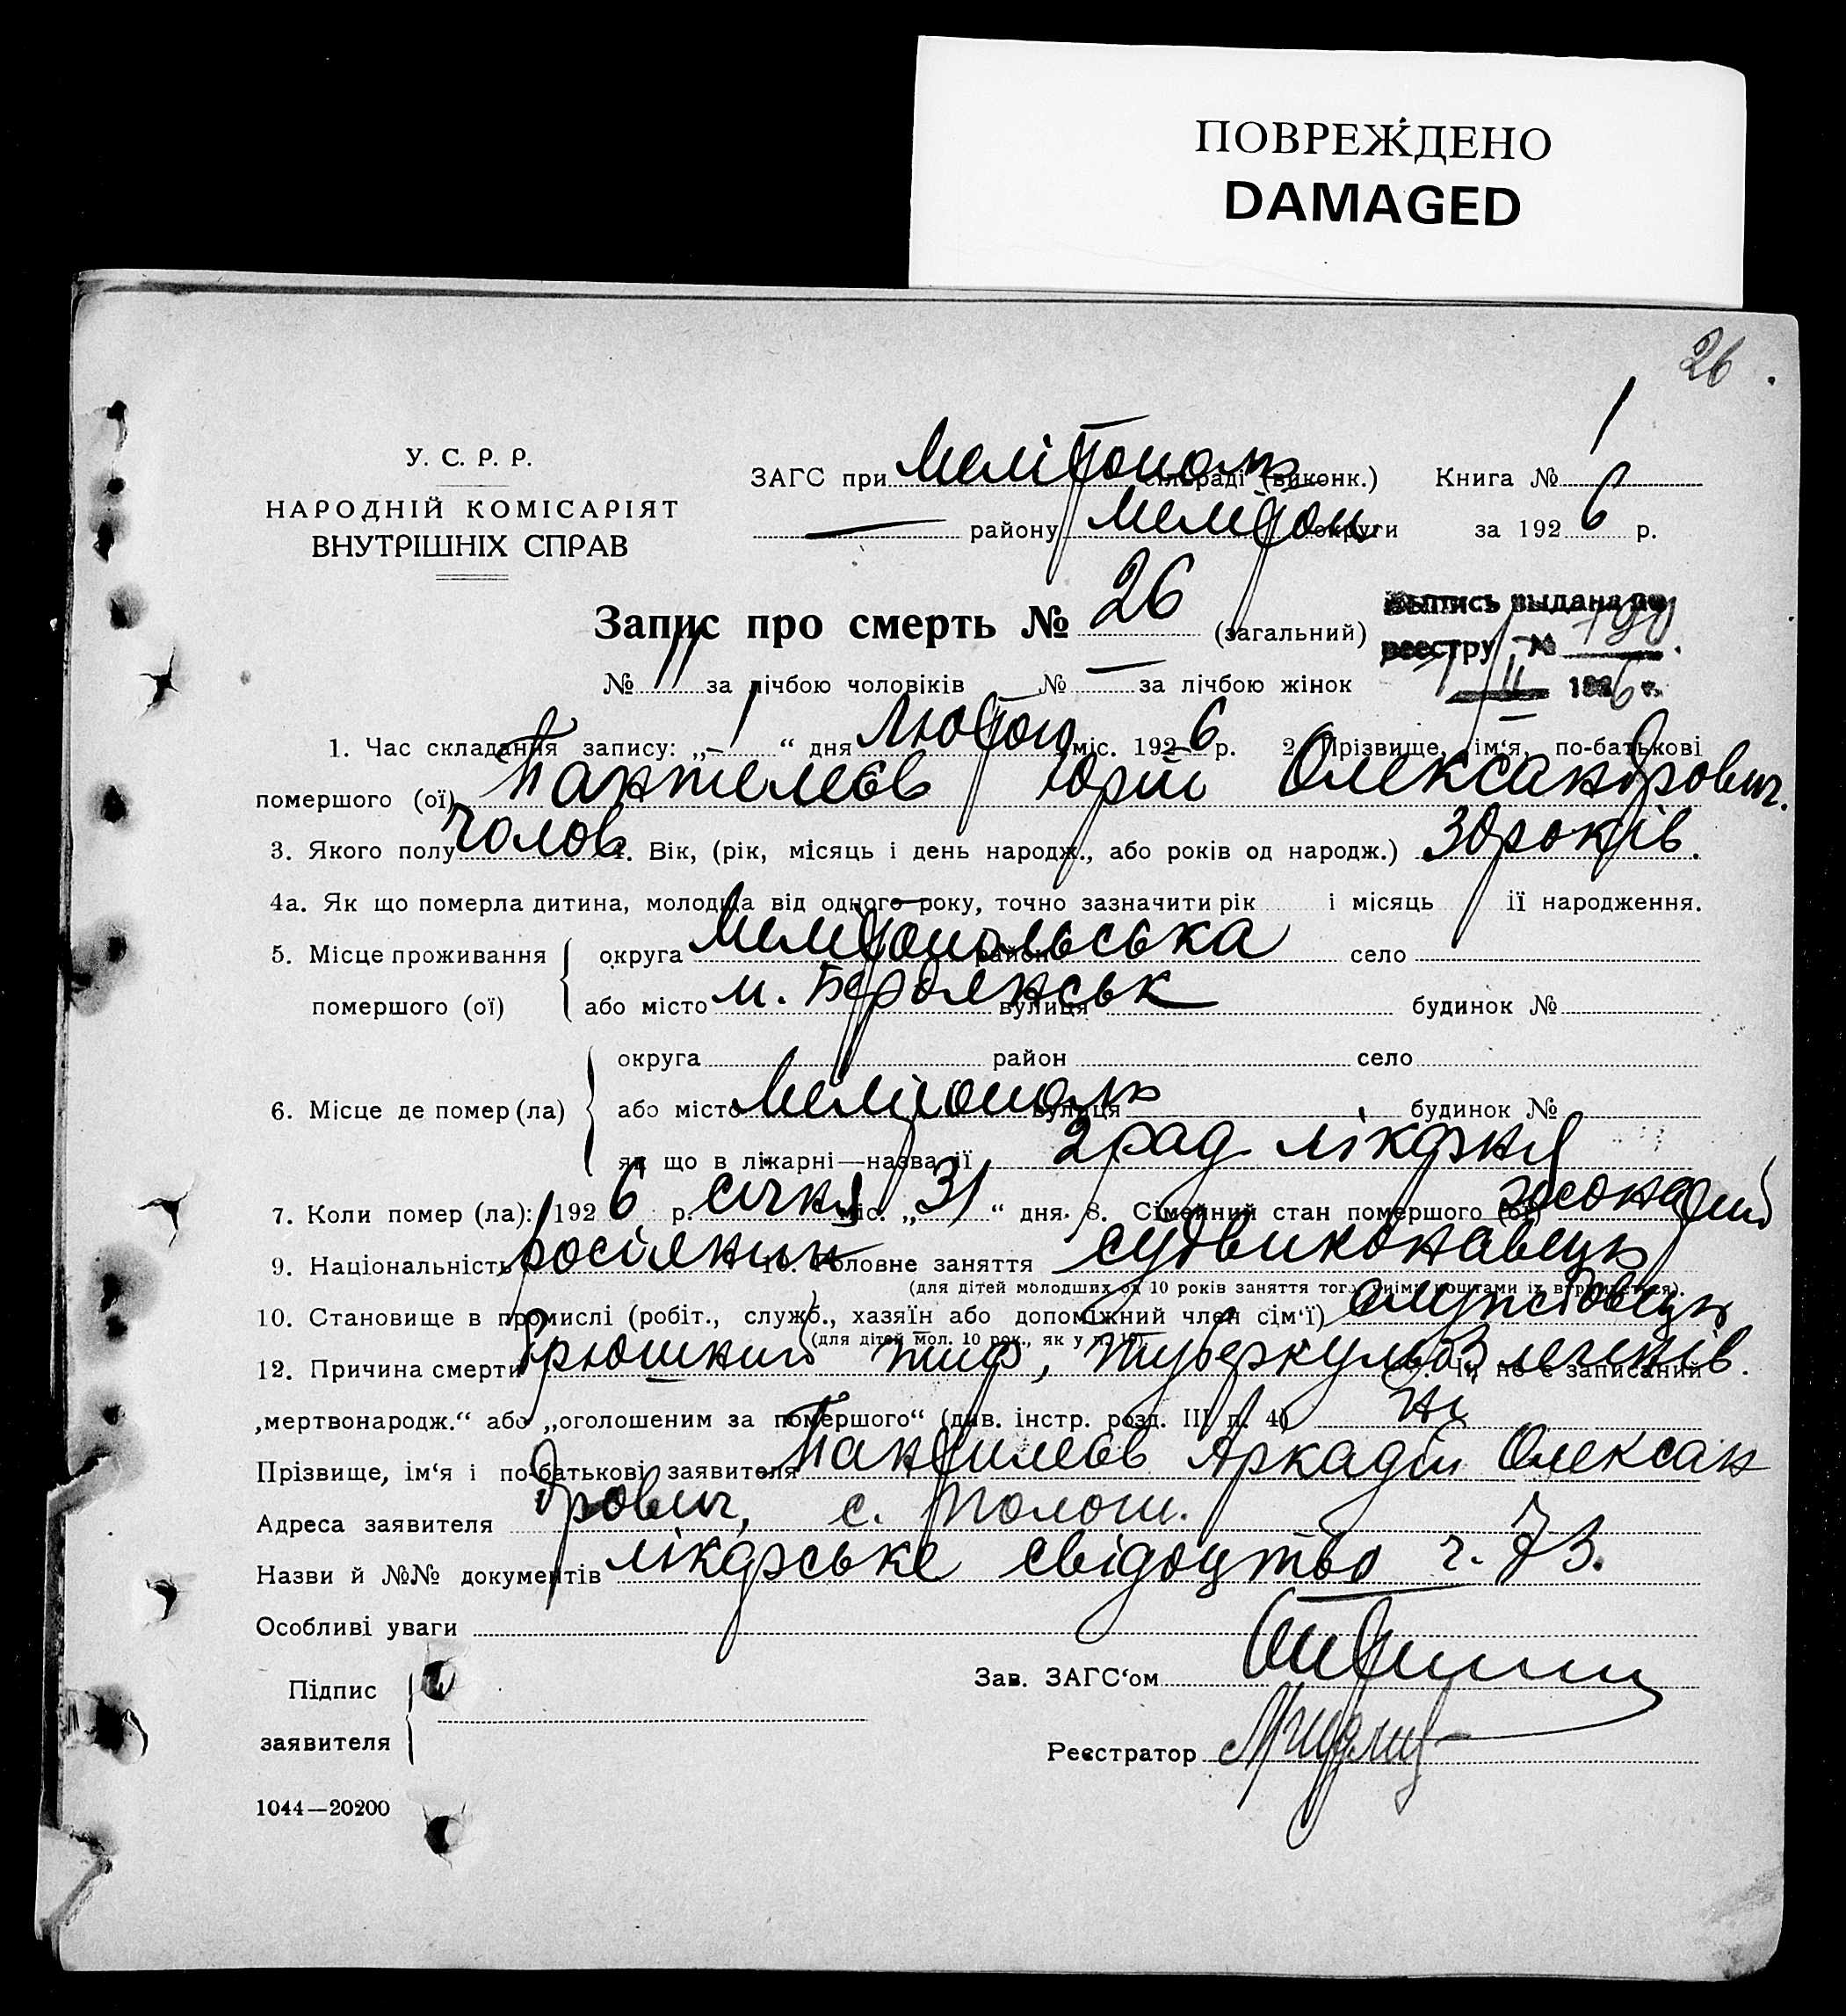 ПОВРЕЖДЕНО
DAMAGED
26.
У. С. Р. Р.
НАРОДНІЙ КОМІСАРІЯТ
ВНУТРІШНІХ СПРАВ
ЗАГС при Мелітополь сільраді (виконк.) Книга № 1
— району Мелітоп округи за 1926 р.
Запис про смерть № 26 (загальний)
Выпись выдана по
реестру № 190
1926 г.
№ 11 за лічбою чоловіків № — за лічбою жінок
1. Час складання запису: „1“ дня Лютого міс. 1926 р. 2. Прізвище, ім‘я, по-батькові
помершого (ої) Пантелеєв Юрій Олександрович.
3. Якого полу чолов 4. Вік, (рік, місяць і день народж., або років од народж.) 30 років.
4а. Як що померла дитина, молодша від одного року, точно зазначити рік і місяць її народження.
5. Місце проживання округа Мелітопольська район село
помершого (ої) або місто м. Бердянськ вулиця будинок №
округа район село
6. Місце де помер (ла) або місто Мелітополь вулиця будинок №
як що в лікарні—назва її 2 рад лікарня
7. Коли помер (ла): 1926 р. січня міс. „31“ дня. 8. Сімейний стан помершого (ої) жонатий
9. Національність росіянин 10. Головне заняття судвиконавець
(для дітей молодших од 10 років заняття того, чиїми коштами їх втримується).
10. Становище в промислі (робіт., служб., хазяїн або допоміжний член сім‘ї) службовець
(для дітей мол. 10 рок., як у п. 10)
12. Причина смерти брюшний тиф, туберкульоз легенів. Чи не є записаний
„мертвонародж.“ або „оголошеним за помершого“ (див. інстр. розд. III п. 4) ні
Прізвище, ім‘я і по-батькові заявителя Пантилеєв Аркадій Олексан
дрович, с. Пологи.
Адреса заявителя
Назви й №№ документів лікарське свідоцтво ч. 73.
Особливі уваги
Підпис
заявителя
Зав. ЗАГС‘ом
Реєстратор
1044—20200